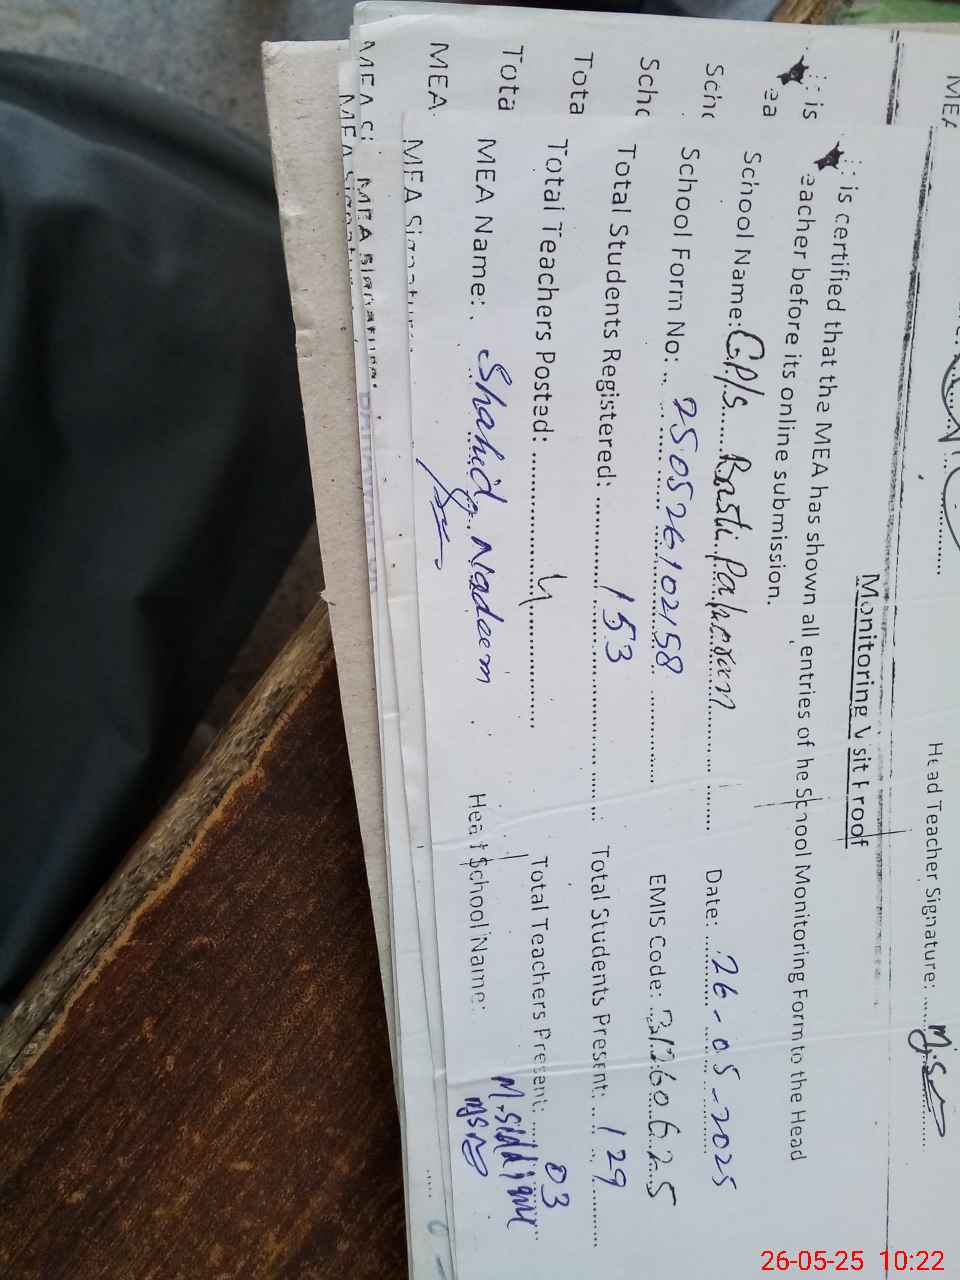 Head Teacher Signature:
Monitoring Visit Proof
is certified that the MEA has shown all entries of he School Monitoring Form to the Head
eacher before its online submission.
School Name: G.P/s Basti Date: 26-05-2025
School Form No: 250526102158 EMIS Code: 31260625
Total Students Registered: 153 Total Students Present: 129
Total Teachers Posted: 4 Total Teachers Present: 03
MEA Name: Shahid Nadeem Head School Name: M.siddique
MEA Signature:
is
ea
Scho
Scho
Tota
Tota
MEA
MEA Signature:
26-05-25 10:22